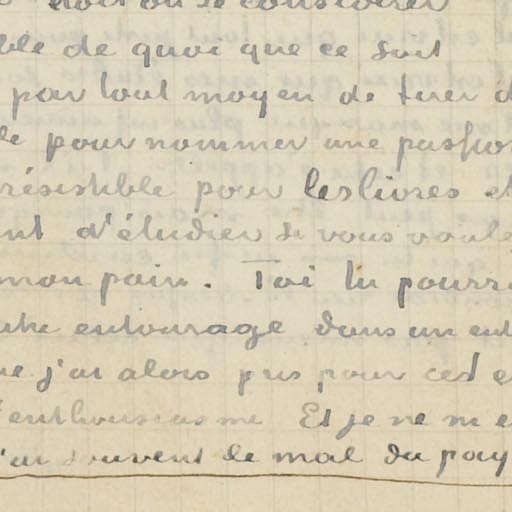 doit on se considérer
ble de quoi que ce soit
par tout moyen de tirer d
le pour nommer une passion
résistible pour les livres et
nt d'étudier si vous voulez
mon pain. Toi tu pourra
utre entourage dans un aut
ue j'ai alors pris pour cet e
l'enthousiasme Et je ne m e
j'ai souvent le mal du pay